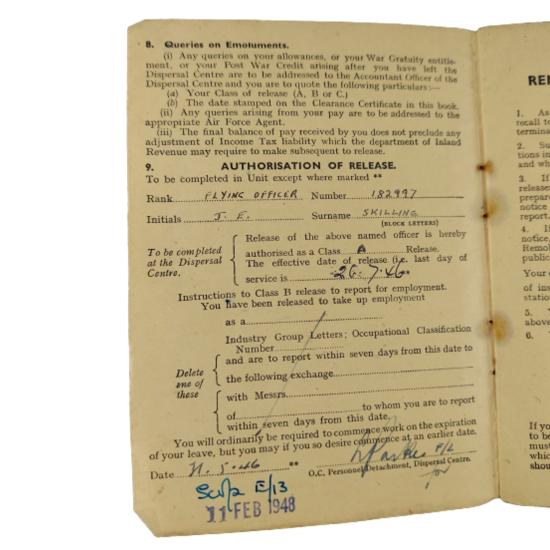 8. Queries on Emoluments.
(i) Any queries on your allowances, or your War Gratuity entitle-
ment, or your Post War Credit arising after you have left the
Dispersal Centre are to be addressed to the Accountant Officer of the
Dispersal Centre and you are to quote the following particulars:—
(a) Your Class of release (A, B or C.)
(b) The date stamped on the Clearance Certificate in this book.
(ii) Any queries arising from your pay are to be addressed to the
appropriate Air Force Agent.
(iii) The final balance of pay received by you does not preclude any
adjustment of Income Tax liability which the department of Inland
Revenue may require to make subsequent to release.
9. AUTHORISATION OF RELEASE.
To be completed in Unit except where marked **
Rank FLYING OFFICER Number 182997
Initials J. E. Surname SKILLING
(BLOCK LETTERS)
To be completed
at the Dispersal
Centre.
Release of the above named officer is hereby
authorised as a Class A Release.
The effective date of release (i.e. last day of
service is 26.7.46 **
Instructions to Class B release to report for employment.
You have been released to take up employment
as a
Industry Group Letters; Occupational Classification
Number
Delete
one of
these
and are to report within seven days from this date to
the following exchange
with Messrs.
of to whom you are to report
within seven days from this date.
You will ordinarily be required to commence work on the expiration
of your leave, but you may if you so desire commence at an earlier date.
Date 5.46 **
F/L
O.C. Personnel Detachment, Dispersal Centre.
for
E/13
11 FEB 1948
1. As
recall to
2. Su
tions in
and wh
3. If
release
prepare
notice
report.
4. If
notice,
Remo
public
Your
of ins
statio
5.
above
6.
If yo
to be
must
which
shou